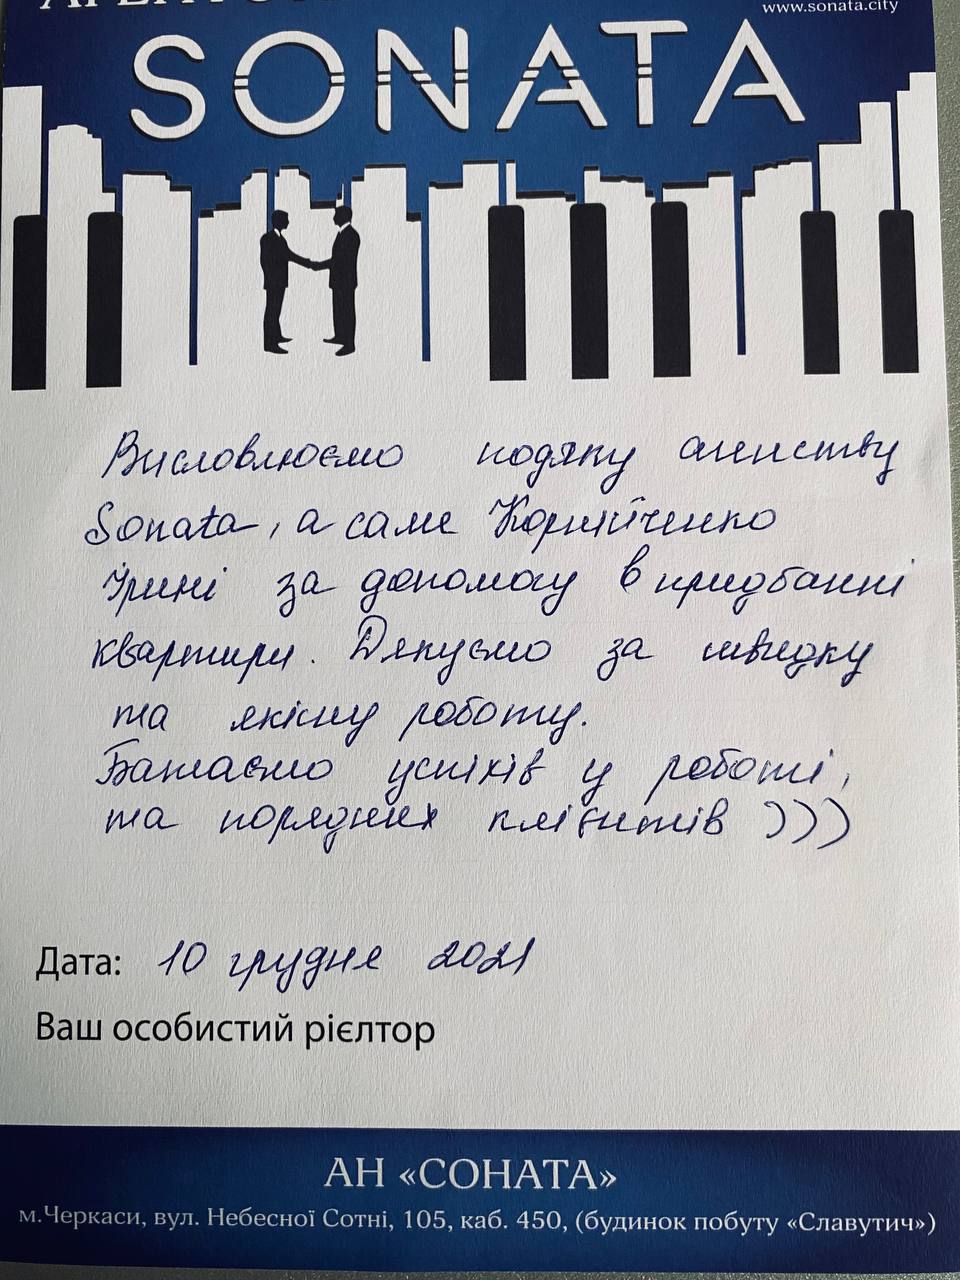 www.sonata.city
SONATA
Висловлюємо подяку агенству
Sonata, а саме Корнійченко
Ірині за допомогу в придбанні
квартири. Дякуємо за швидку
та якісну роботу.
Бажаємо успіхів у роботі,
та порядних клієнтів )))
Дата: 10 грудня 2021
Ваш особистий рієлтор
АН «СОНАТА»
м.Черкаси, вул. Небесної Сотні, 105, каб. 450, (будинок побуту «Славутич»)